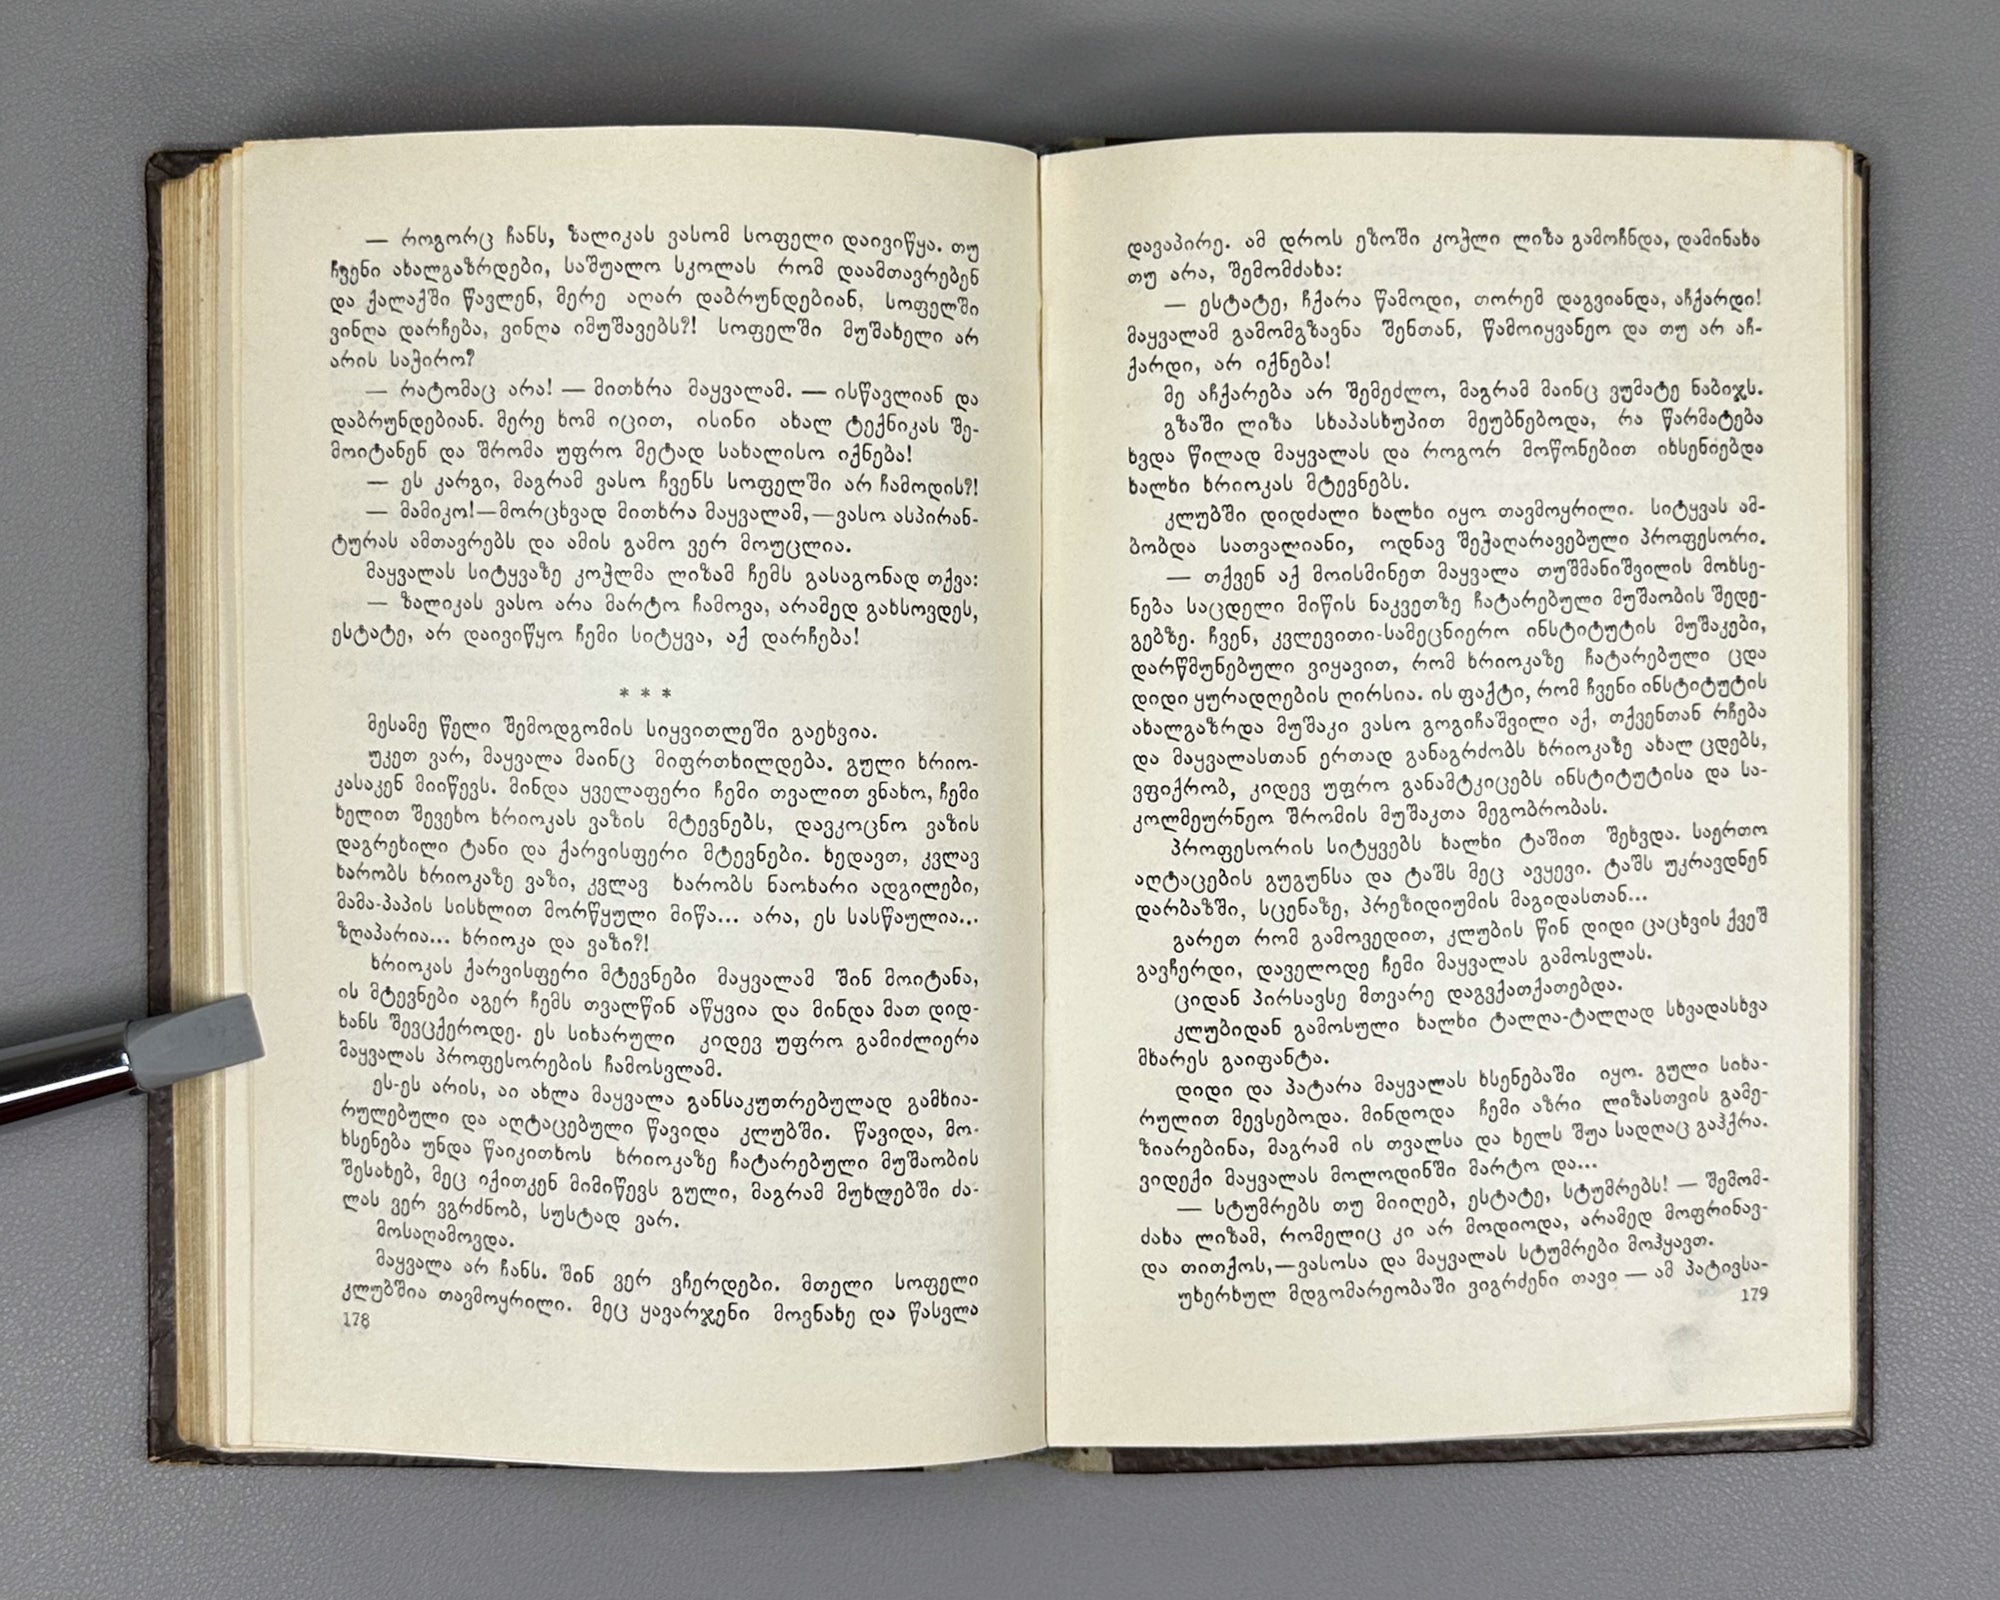 — როგორც ჩანს, ზალიკას ვასომ სოფელი დაივიწყა. თუ
ჩვენი ახალგაზრდები, საშუალო სკოლას რომ დაამთავრებენ
და ქალაქში წავლენ, მერე აღარ დაბრუნდებიან, სოფელში
ვინღა დარჩება, ვინღა იმუშავებს?! სოფელში მუშახელი არ
არის საჭირო?
— რატომაც არა! — მითხრა მაყვალამ. — ისწავლიან და
დაბრუნდებიან. მერე ხომ იცით, ისინი ახალ ტექნიკას შე-
მოიტანენ და შრომა უფრო მეტად სახალისო იქნება!
— ეს კარგი, მაგრამ ვასო ჩვენს სოფელში არ ჩამოდის?!
— მამიკო!—მორცხვად მითხრა მაყვალამ,—ვასო ასპირან-
ტურას ამთავრებს და ამის გამო ვერ მოუცლია.
მაყვალას სიტყვაზე კოჭლმა ლიზამ ჩემს გასაგონად თქვა:
— ზალიკას ვასო არა მარტო ჩამოვა, არამედ გახსოვდეს,
ესტატე, არ დაივიწყო ჩემი სიტყვა, აქ დარჩება!
* * *
მესამე წელი შემოდგომის სიყვითლეში გაეხვია.
უკეთ ვარ, მაყვალა მაინც მიფრთხილდება. გული ხრიო-
კასაკენ მიიწევს. მინდა ყველაფერი ჩემი თვალით ვნახო, ჩემი
ხელით შევეხო ხრიოკას ვაზის მტევნებს, დავკოცნო ვაზის
დაგრეხილი ტანი და ქარვისფერი მტევნები. ხედავთ, კვლავ
ხარობს ხრიოკაზე ვაზი, კვლავ ხარობს ნაოხარი ადგილები,
მამა-პაპის სისხლით მორწყული მიწა... არა, ეს სასწაულია...
ზღაპარია... ხრიოკა და ვაზი?!
ხრიოკას ქარვისფერი მტევნები მაყვალამ შინ მოიტანა,
ის მტევნები აგერ ჩემს თვალწინ აწყვია და მინდა მათ დიდ-
ხანს შევცქეროდე. ეს სიხარული კიდევ უფრო გამიძლიერა
მაყვალას პროფესორების ჩამოსვლამ.
ეს-ეს არის, აი ახლა მაყვალა განსაკუთრებულად გამხია-
რულებული და აღტაცებული წავიდა კლუბში. წავიდა, მო-
ხსენება უნდა წაიკითხოს ხრიოკაზე ჩატარებული მუშაობის
შესახებ, მეც იქითკენ მიმიწევს გული, მაგრამ მუხლებში ძა-
ლას ვერ ვგრძნობ, სუსტად ვარ.
მოსაღამოვდა.
მაყვალა არ ჩანს. შინ ვერ ვჩერდები. მთელი სოფელი
კლუბშია თავმოყრილი. მეც ყავარჯენი მოვნახე და წასვლა
178
დავაპირე. ამ დროს ეზოში კოჭლი ლიზა გამოჩნდა, დამინახა
თუ არა, შემომძახა:
— ესტატე, ჩქარა წამოდი, თორემ დაგვიანდა, აჩქარდი!
მაყვალამ გამომგზავნა შენთან, წამოიყვანეო და თუ არ აჩ-
ქარდი, არ იქნება!
მე აჩქარება არ შემეძლო, მაგრამ მაინც ვუმატე ნაბიჯს.
გზაში ლიზა სხაპასხუპით მეუბნებოდა, რა წარმატება
ხვდა წილად მაყვალას და როგორ მოწონებით იხსენიებდა
ხალხი ხრიოკას მტევნებს.
კლუბში დიდძალი ხალხი იყო თავმოყრილი. სიტყვას ამ-
ბობდა სათვალიანი, ოდნავ შეჭაღარავებული პროფესორი.
— თქვენ აქ მოისმინეთ მაყვალა თუშმანიშვილის მოხსე-
ნება საცდელი მიწის ნაკვეთზე ჩატარებული მუშაობის შედე-
გებზე. ჩვენ, კვლევითი-სამეცნიერო ინსტიტუტის მუშაკები,
დარწმუნებული ვიყავით, რომ ხრიოკაზე ჩატარებული ცდა
დიდი ყურადღების ღირსია. ის ფაქტი, რომ ჩვენი ინსტიტუტის
ახალგაზრდა მუშაკი ვასო გოგიჩაშვილი აქ, თქვენთან რჩება
და მაყვალასთან ერთად განაგრძობს ხრიოკაზე ახალ ცდებს,
ვფიქრობ, კიდევ უფრო განამტკიცებს ინსტიტუტისა და სა-
კოლმეურნეო შრომის მუშაკთა მეგობრობას.
პროფესორის სიტყვებს ხალხი ტაშით შეხვდა. საერთო
აღტაცების გუგუნსა და ტაშს მეც ავყევი. ტაშს უკრავდნენ
დარბაზში, სცენაზე, პრეზიდიუმის მაგიდასთან...
გარეთ რომ გამოვედით, კლუბის წინ დიდი ცაცხვის ქვეშ
გავჩერდი, დაველოდე ჩემი მაყვალას გამოსვლას.
ციდან პირსავსე მთვარე დაგვქათქათებდა.
კლუბიდან გამოსული ხალხი ტალღა-ტალღად სხვადასხვა
მხარეს გაიფანტა.
დიდი და პატარა მაყვალას ხსენებაში იყო. გული სიხა-
რულით მევსებოდა. მინდოდა ჩემი აზრი ლიზასთვის გამე-
ზიარებინა, მაგრამ ის თვალსა და ხელს შუა სადღაც გაჰქრა.
ვიდექი მაყვალას მოლოდინში მარტო და...
— სტუმრებს თუ მიიღებ, ესტატე, სტუმრებს! — შემომ-
ძახა ლიზამ, რომელიც კი არ მოდიოდა, არამედ მოფრინავ-
და თითქოს,—ვასოსა და მაყვალას სტუმრები მოჰყავთ.
უხერხულ მდგომარეობაში ვიგრძენი თავი — ამ პატივსა-
179